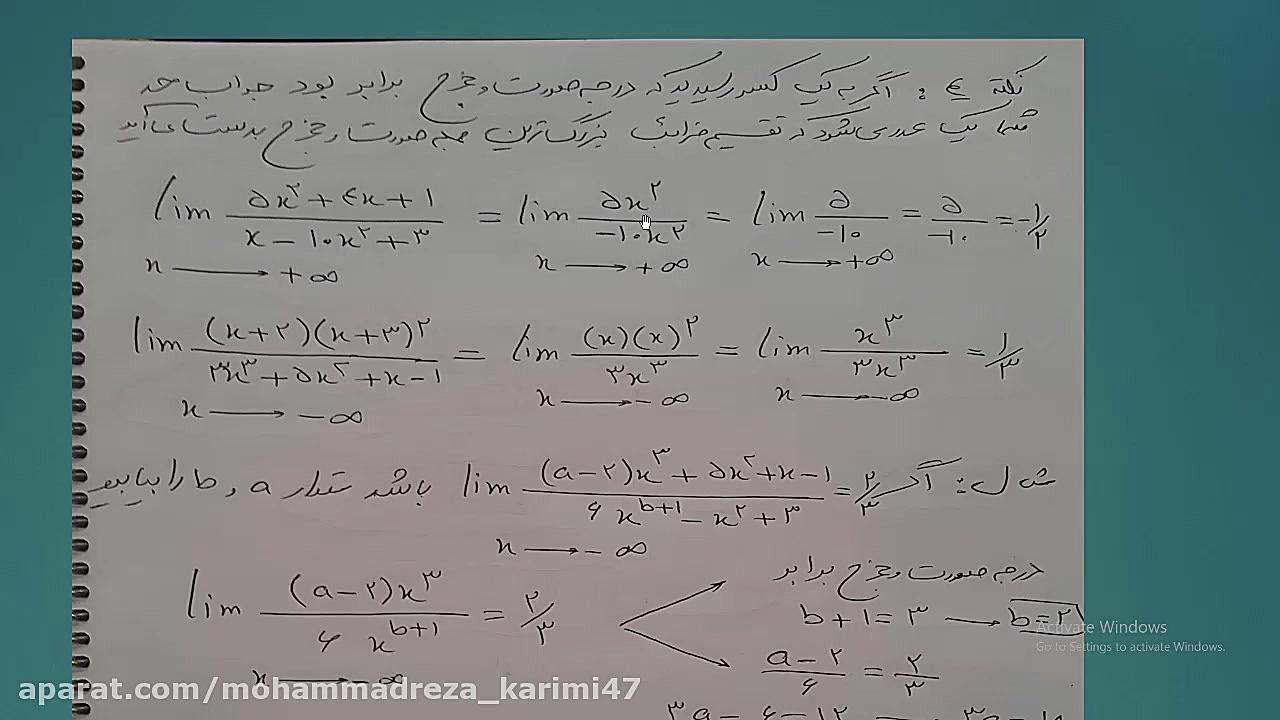 نکته ٤ : اگر به یک کسر رسیدید که درجه صورت و مخرج برابر بود جواب حد
شما یک عددی شود که تقسیم ضرائب بزرگ‌ترین جمله صورت و مخرج بدست می‌آید
lim x→+∞ (۵x² + ۴x + ۱)/(x − ۱۰x² + ۳) = lim x→+∞ ۵x²/−۱۰x² = lim x→+∞ ۵/−۱۰ = ۵/−۱۰ = −۱/۲
lim x→−∞ (x+۲)(x+۳)²/(۳x³ + ۵x² + x − ۱) = lim x→−∞ (x)(x)²/۳x³ = lim x→−∞ x³/۳x³ = ۱/۳
مثال: اگر lim x→−∞ ((a−۲)x³ + ۵x² + x − ۱)/(۶x^(b+۱) − x² + ۳) = ۲/۳ باشد مقدار a و b را بیابید
درجه صورت و مخرج برابر
lim x→−∞ (a−۲)x³/۶x^(b+۱) = ۲/۳
b+۱ = ۳ → b=۲
(a−۲)/۶ = ۲/۳
۳a − ۶ = ۱۲
Activate Windows
Go to Settings to activate Windows.
aparat.com/mohammadreza_karimi47